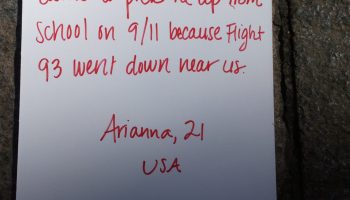 me up from
school on 9/11 because Flight
93 went down near us.
Arianna, 21
USA